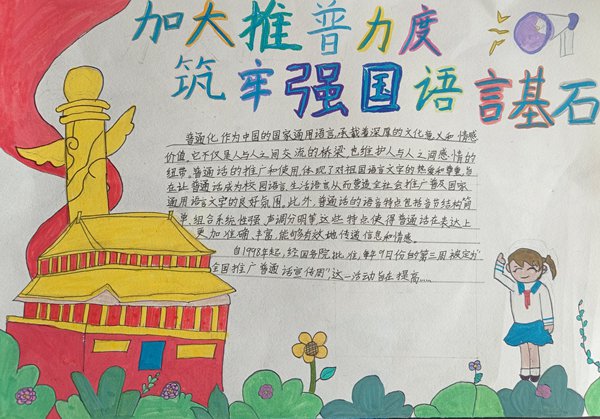 加大推普力度
筑牢强国语言基石
普通化,作为中国的国家通用语言,承载着深厚的文化意义和情感
价值,它不仅是人与人之间交流的桥梁,也维护人与人之间感情的
纽带。普通话的推广和使用体现了对祖国语言文字的热爱和尊重,旨
在让普通话成为校园语言,生活语言从而营造全社会推广普及国家
通用语言文字的良好氛围。此外,普通话的语音特点包括音节结构简
单,组合系统性强,声调分明等,这些特点使得普通话在表达上
更加准确,丰富,能够有效地传递信息和情感。
自1998年起,经国务院批准,每年9月份的第三周被定为"
全国推广普通话宣传周"这一活动旨在提高……